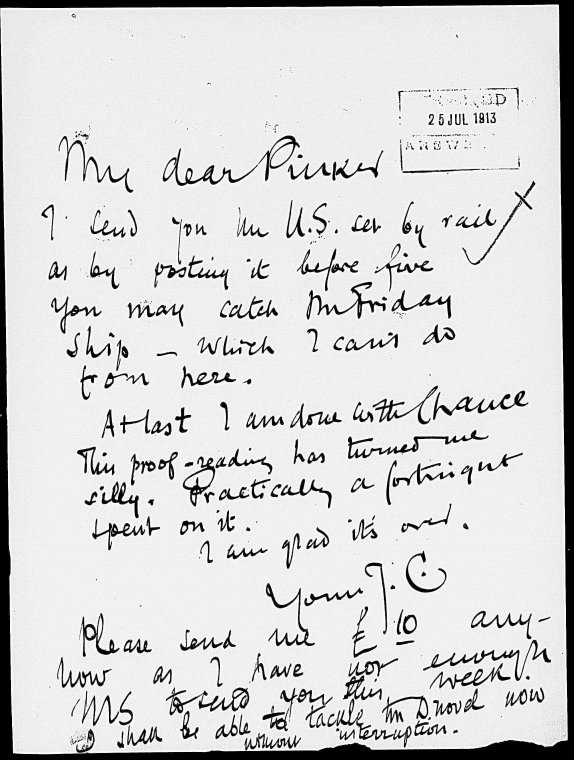 25 JUL 1913
ANSWE
My dear Pinker
I send you the U.S. set by rail
as by posting it before five
you may catch the Friday
ship – which I can't do
from here.
At last I am done with Chance
This proof-reading has turned me
silly. Practically a fortnight
spent on it.
I am glad it's over.
Yours J. C.
Please send me £10 any-
how as I have not enough
MS to send you this week.
I shall be able to tackle the D. novel now
without interruption.